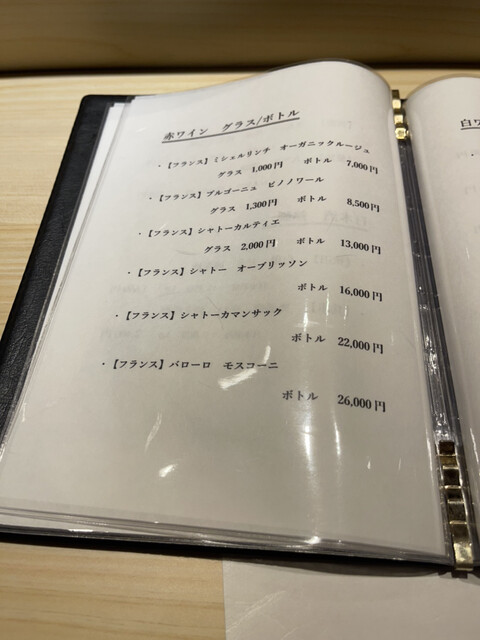 赤ワイン グラス/ボトル
・【フランス】ミシェルリンチ オーガニックルージュ
グラス 1,000円 ボトル 7,000円
・【フランス】ブルゴーニュ ピノノワール
グラス 1,300円 ボトル 8,500円
・【フランス】シャトーカルティエ
グラス 2,000円 ボトル 13,000円
・【フランス】シャトー オーブリッソン
ボトル 16,000円
・【フランス】シャトーカマンサック
ボトル 22,000円
・【フランス】バローロ モスコーニ
ボトル 26,000円
白ワ